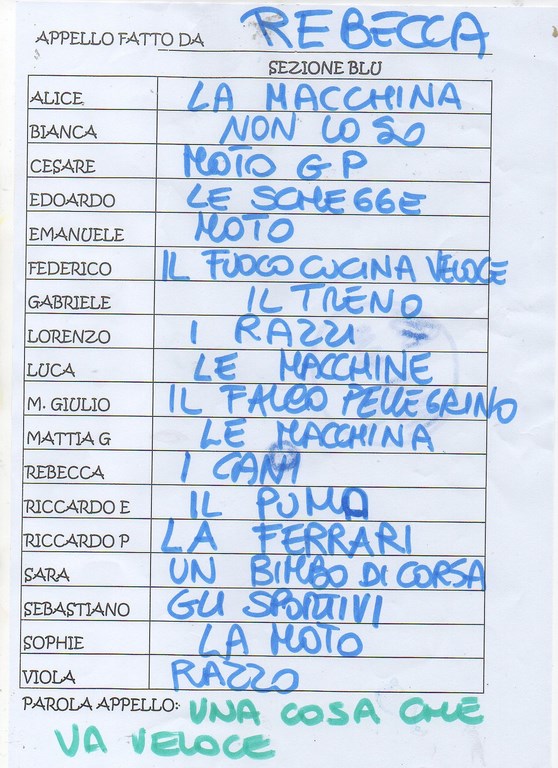 APPELLO FATTO DA REBECCA
SEZIONE BLU
ALICE LA MACCHINA
BIANCA NON LO SO
CESARE MOTO GP
EDOARDO LE SCHEGGE
EMANUELE MOTO
FEDERICO IL FUOCO CUCINA VELOCE
GABRIELE IL TRENO
LORENZO I RAZZI
LUCA LE MACCHINE
M. GIULIO IL FALCO PELLEGRINO
MATTIA G LE MACCHINA
REBECCA I CANI
RICCARDO E IL PUMA
RICCARDO P LA FERRARI
SARA UN BIMBO DI CORSA
SEBASTIANO GLI SPORTIVI
SOPHIE LA MOTO
VIOLA RAZZO
PAROLA APPELLO: UNA COSA CHE
VA VELOCE